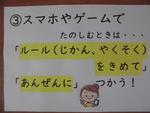 ③スマホやゲームで
たのしむときは・・・
「ルール(じかん、やくそく)
をきめて」
「あんぜんに」つかう!